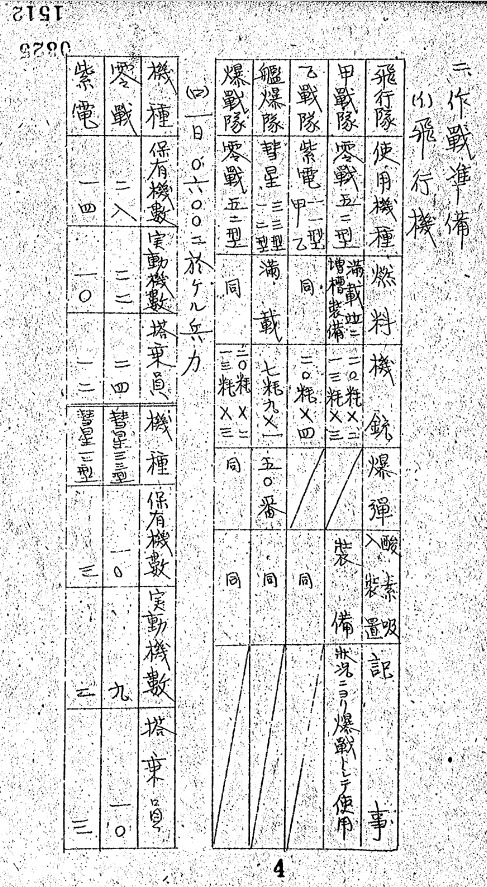 1512
0825
二、作戰準備
(イ)飛行機
飛行隊 使用機種 燃料 機銃 爆彈 酸素吸入装置 記事
甲戰隊 零戰五二型 満載並ニ増槽装備 二〇粍×二 一三粍×三 装備 狀況ニヨリ爆戰トシテ使用
乙戰隊 紫電一一型甲乙 同 二〇粍×四 同
艦爆隊 彗星三三型一二型 満載 七粍九×一 五〇番 同
爆戰隊 零戰五二型 同 二〇粍×二 一三粍×三 同 同
(ロ)一日〇六〇〇ニ於ケル兵力
機種 保有機數 実動機數 搭乗員 機種 保有機數 実動機數 搭乗員
零戰 二八 二二 二四 彗星三三型 一〇 九 一〇
紫電 一四 一〇 一二 彗星一二型 三 二 三
4